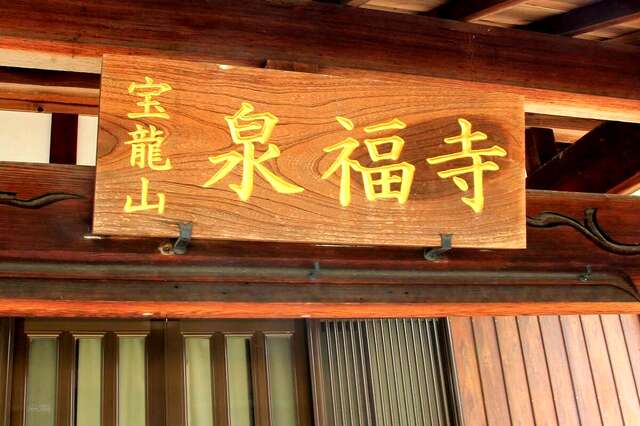 宝龍山
泉福寺